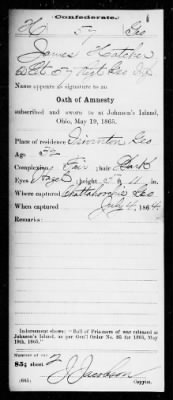 Confederate.
H 57 Geo
James Hatcher
Name appears as signature to an
Oath of Amnesty
subscribed and sworn to at Johnson's Island,
Ohio, May 19, 1865.
Place of residence Irwinton Geo
Age 32
Complexion Fair; hair Dark
Eyes Hazel; height 5 ft. 11 in.
Where captured Chattahoochee Geo
When captured July 4, 1864
Remarks:
Indorsement shows: "Roll of Prisoners of war released at
Johnson's Island, as per Gen'l Order No. 85 for 1865, May
19th, 1865."
Number of roll:
85; sheet 2
J. Jacobson
(635) Copyist.